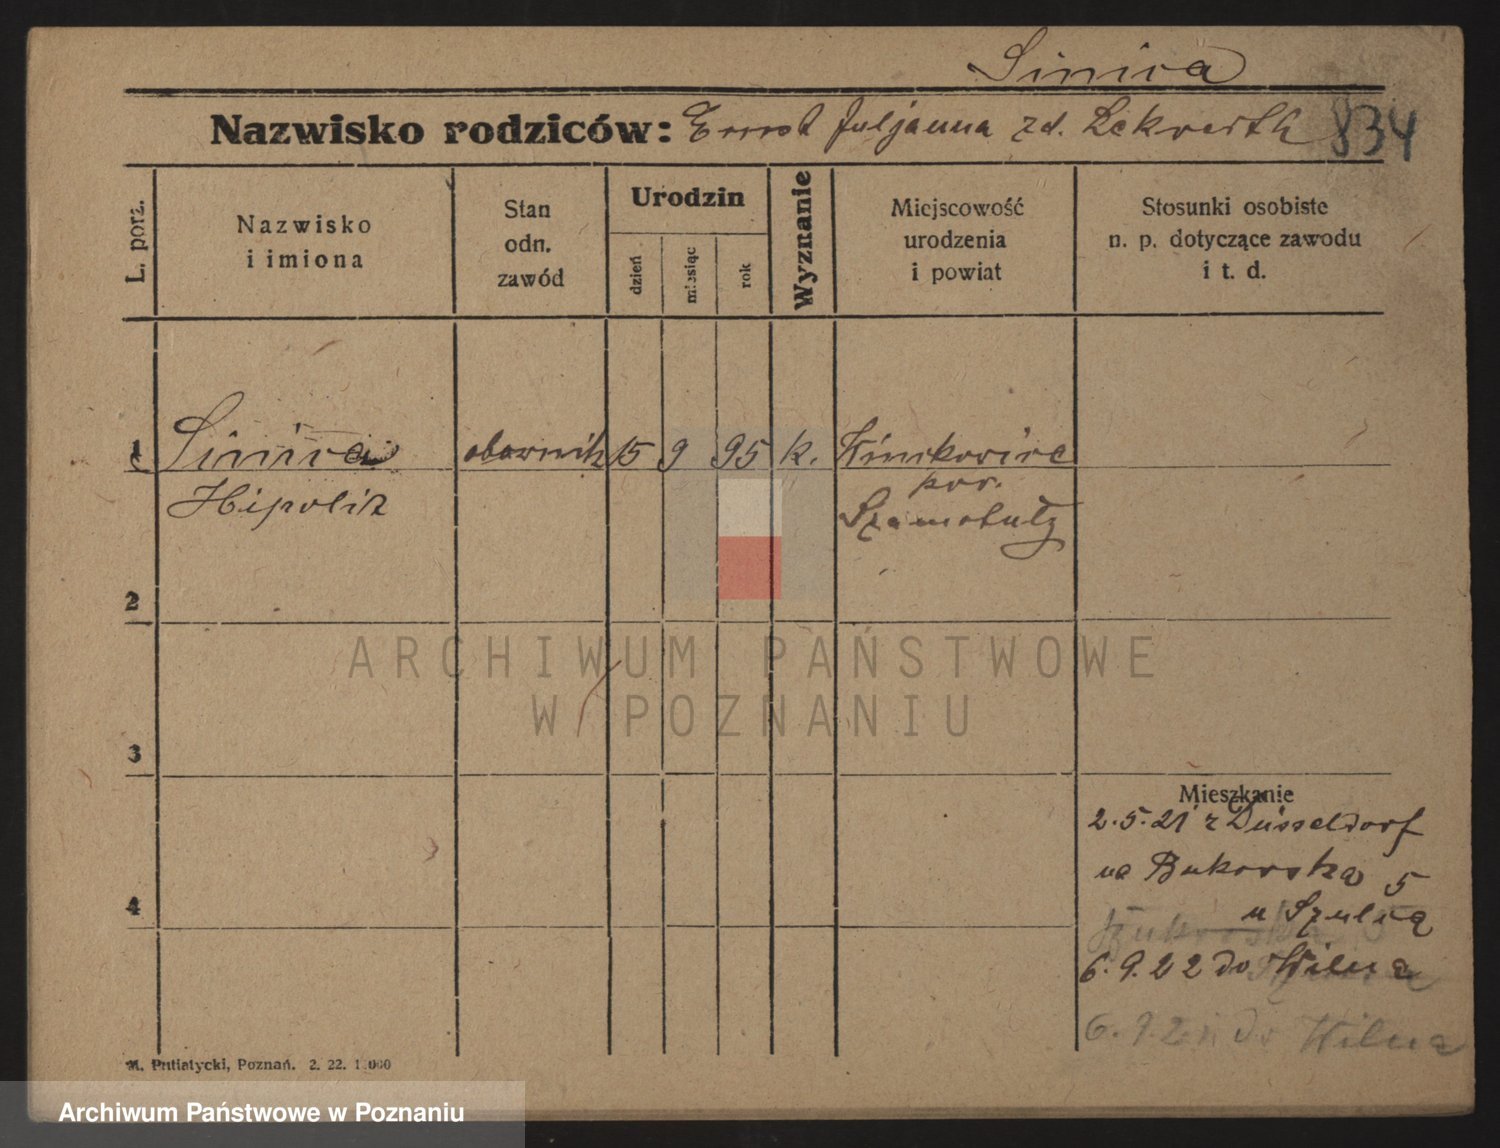 Sinica
Nazwisko rodziców: Ernst Juljanna zd. Lekverth 834
L. porz.
Nazwisko
i imiona
Stan
odn.
zawód
Urodzin
dzień
miesiąc
rok
Wyznanie
Miejscowość
urodzenia
i powiat
Stosunki osobiste
n. p. dotyczące zawodu
i t. d.
1 Sinica 15 9 95 k.
Hipolit
pow.
Szamotuły
2
3
Mieszkanie
2.5.21 z Düsseldorf
na Bukowską 5
4
u Szulca
6.9.22 do Wilna
6.9.22 do Wilna
M. Putiatycki, Poznań. 2. 22.
ARCHIWUM PAŃSTWOWE
W POZNANIU
Archiwum Państwowe w Poznaniu